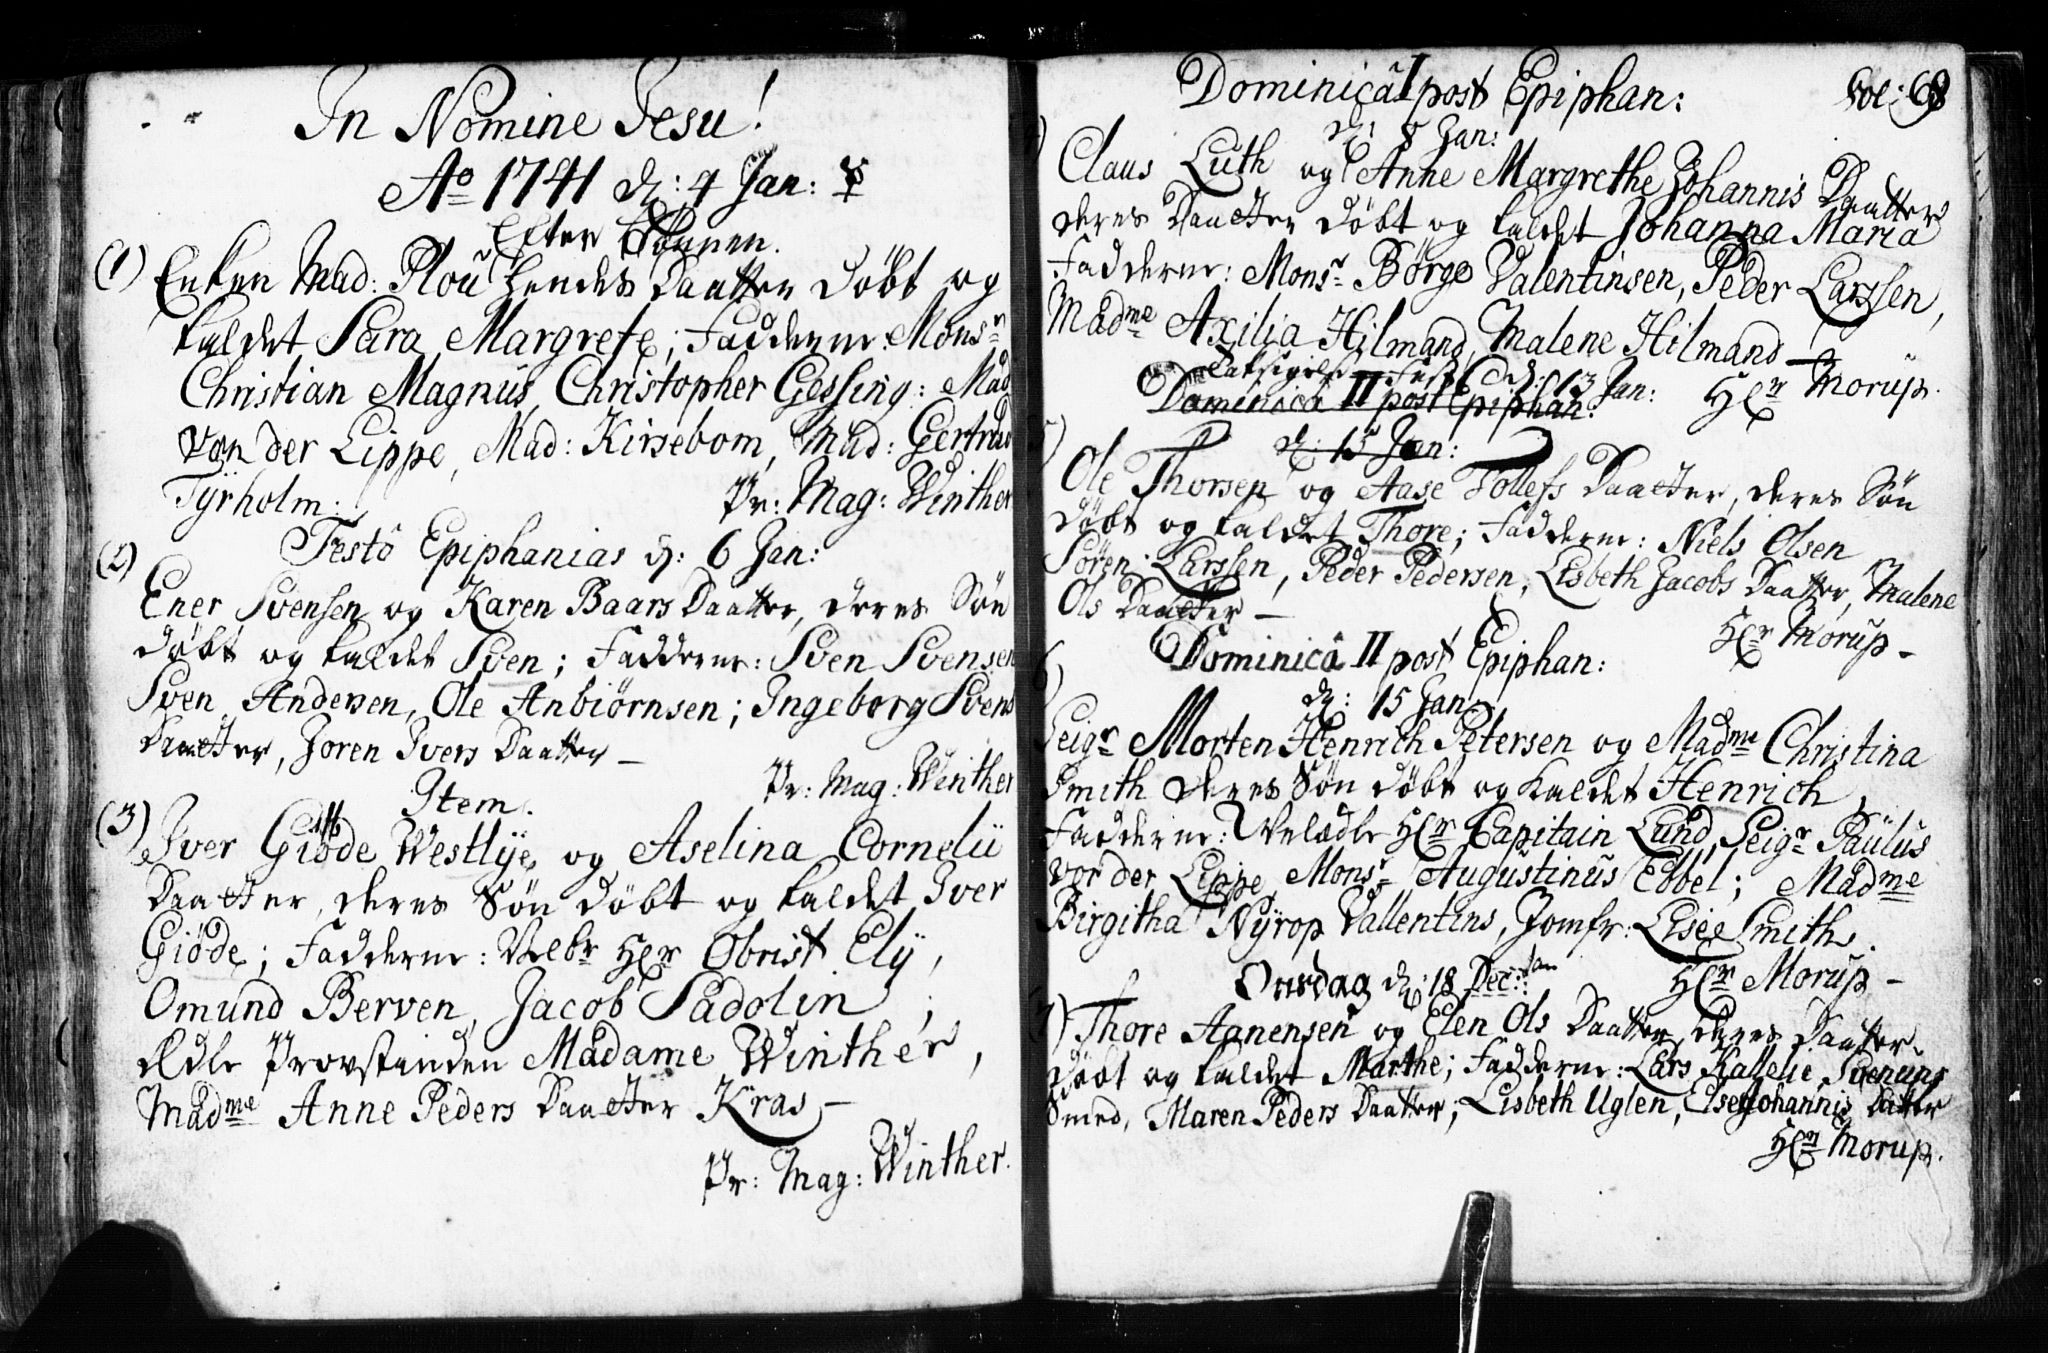 In Nomine Jesu!
Ao 1741 d: 4 Jan:
Efter Bønnen.
(1) Enken Mad: Plou hendes Daatter døbt og
kaldet Sara Margrete; Fadderne: Monsr
Christian Magnus, Christopher Gessing: Mad
von der Lippe, Mad: Kirsebom, Mad: Gertrud
Tyrholm:
Pr: Mag: Winther
Festo Epiphanias d: 6 Jan:
(2) Ener Svensen og Karen Baars Daatter, deres Søn
døbt og kaldet Sven; Fadderne: Sven Svensen
Sven Andersen, Ole Anbiørnsen; Ingeborg Svens
Daatter, Joren Ivers Daatter —
Pr: Mag: Winther
Item.
(3) Iver Giøde Westlÿe og Aselina Cornelii
Daatter, deres Søn døbt og kaldet Iver
Giøde; Fadderne: Velbr Hr Obrist Elÿ,
Omund Berven, Jacob Sadolin;
Ædle Provstinden Madame Winther,
Madme Anne Peders Daatter Kras —
Pr: Mag: Winther.
Dominica I post Epiphan:
Fol: 68
d: 8 Jan:
Claus Luth og Anne Margrethe Johannis Daatter
deres Daatter døbt og kaldet Johanna Maria
Fadderne: Monsr Børge Valentinsen, Peder Larssen,
Madme Axilia Hilmand, Malene Hilmand —
Hr Morup.
Taksigelse Fest d: 13 Jan:
Dominica II post Epiphan:
d: 15 Jan:
5) Ole Thorsen og Aase Tollefs Daatter, deres Søn
døbt og kaldet Thore; Fadderne: Niels Olsen
Søren Larssen, Peder Pedersen, Lisbeth Jacobs Daatter, Malene
Ols Daatter —
Hr Morup —
Dominica II post Epiphan:
6)
d: 15 Jan:
Seigr Morten Henrich Petersen og Madme Christina
Smith deres Søn døbt og kaldet Henrich,
Fadderne: Velædle Hr Capitain Lund, Seigr Paulus
vor der Lippe, Monsr Augustinus Ebbel; Madme
Birgitha Nÿrop Vallentins, Jomfr: Lisee Smith.
Hr Morup —
Onsdag d: 18 Dec: Jan
7) Thore Aanensen og Elen Ols Daatter, deres Daatter
døbt og kaldet Marthe; Fadderne: Lars Kallelie, Svenung
Smed, Maren Peders Daatter, Lisbeth Uglen, Else Johannis Datter
Hr Morup.